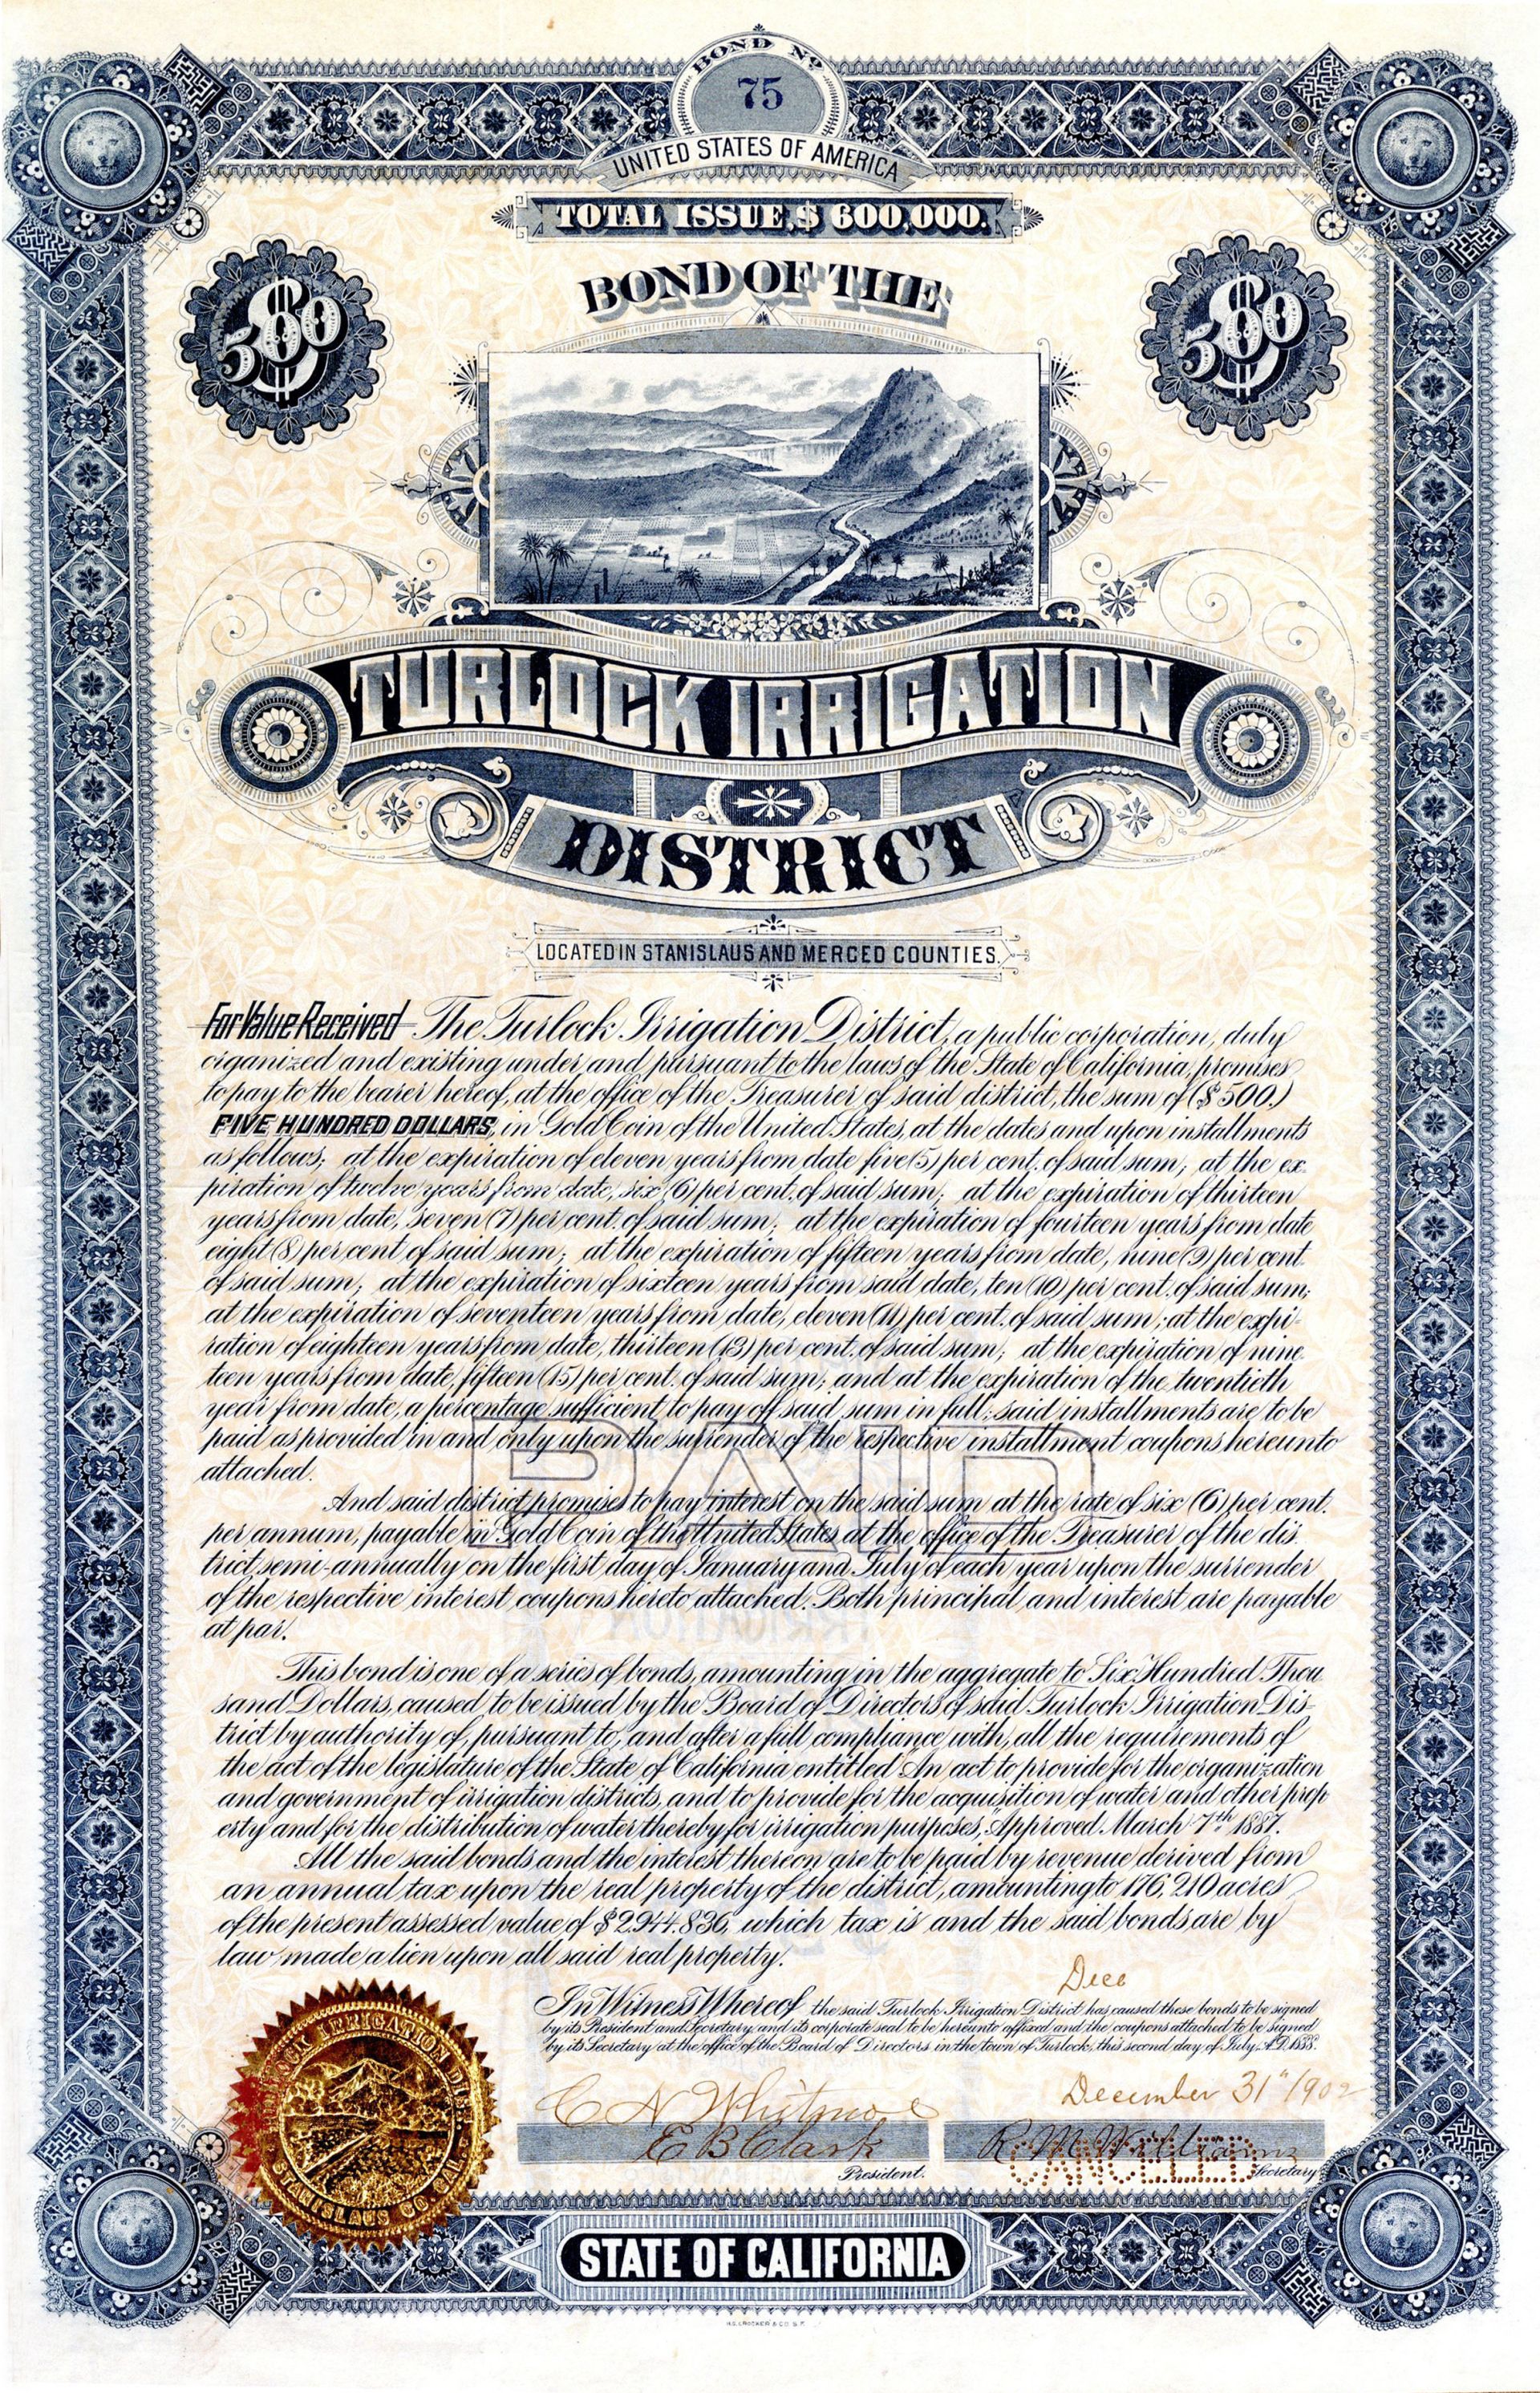 BOND No
75
UNITED STATES OF AMERICA
TOTAL ISSUE, $ 600,000.
BOND OF THE
$500
$500
TURLOCK IRRIGATION
DISTRICT
LOCATED IN STANISLAUS AND MERCED COUNTIES.
For Value Received The Turlock Irrigation District, a public corporation, duly
organized and existing under and pursuant to the laws of the State of California, promises
to pay to the bearer hereof, at the office of the Treasurer of said district, the sum of ($500.)
FIVE HUNDRED DOLLARS, in Gold Coin of the United States, at the dates and upon installments
as follows; at the expiration of eleven years from date five (5) per cent. of said sum; at the ex
piration of twelve years from date, six (6) per cent. of said sum; at the expiration of thirteen
years from date, seven (7) per cent. of said sum; at the expiration of fourteen years from date
eight (8) per cent of said sum; at the expiration of fifteen years from date, nine (9) per cent.
of said sum; at the expiration of sixteen years from said date, ten (10) per cent. of said sum;
at the expiration of seventeen years from date, eleven (11) per cent. of said sum; at the expi-
ration of eighteen years from date, thirteen (13) per cent. of said sum; at the expiration of nine
teen years from date, fifteen (15) per cent. of said sum; and at the expiration of the twentieth
year from date, a percentage sufficient to pay off said sum in full; said installments are to be
paid as provided in and only upon the surrender of the respective installment coupons hereunto
attached.
PAID
And said district promises to pay interest on the said sum at the rate of six (6) per cent.
per annum, payable in Gold Coin of the United States at the office of the Treasurer of the dis
trict, semi-annually on the first day of January and July of each year upon the surrender
of the respective interest coupons hereto attached. Both principal and interest are payable
at par.
This bond is one of a series of bonds, amounting in the aggregate to Six Hundred Thou
sand Dollars, caused to be issued by the Board of Directors of said Turlock Irrigation Dis-
trict by authority of, pursuant to, and after a full compliance with, all the requirements of
the act of the legislature of the State of California entitled "An act to provide for the organization
and government of irrigation districts, and to provide for the acquisition of water and other prop
erty and for the distribution of water thereby for irrigation purposes," Approved March 7th 1887.
All the said bonds and the interest thereon are to be paid by revenue derived from
an annual tax upon the real property of the district, amounting to 176,210 acres
of the present assessed value of $2,944,836, which tax is and the said bonds are by
law made a lien upon all said real property.
In Witness Whereof the said Turlock Irrigation District has caused these bonds to be signed
by its President and Secretary and its corporate seal to be hereunto affixed and the coupons attached to be signed
by its Secretary at the office of the Board of Directors in the town of Turlock, this second day of July, A.D. 1888.
December 31st 1902
E B Clark
President.
R M Williams
CANCELLED
Secretary
TURLOCK IRRIGATION DIST
STANISLAUS CO CAL
STATE OF CALIFORNIA
H.S. CROCKER & CO S.F.